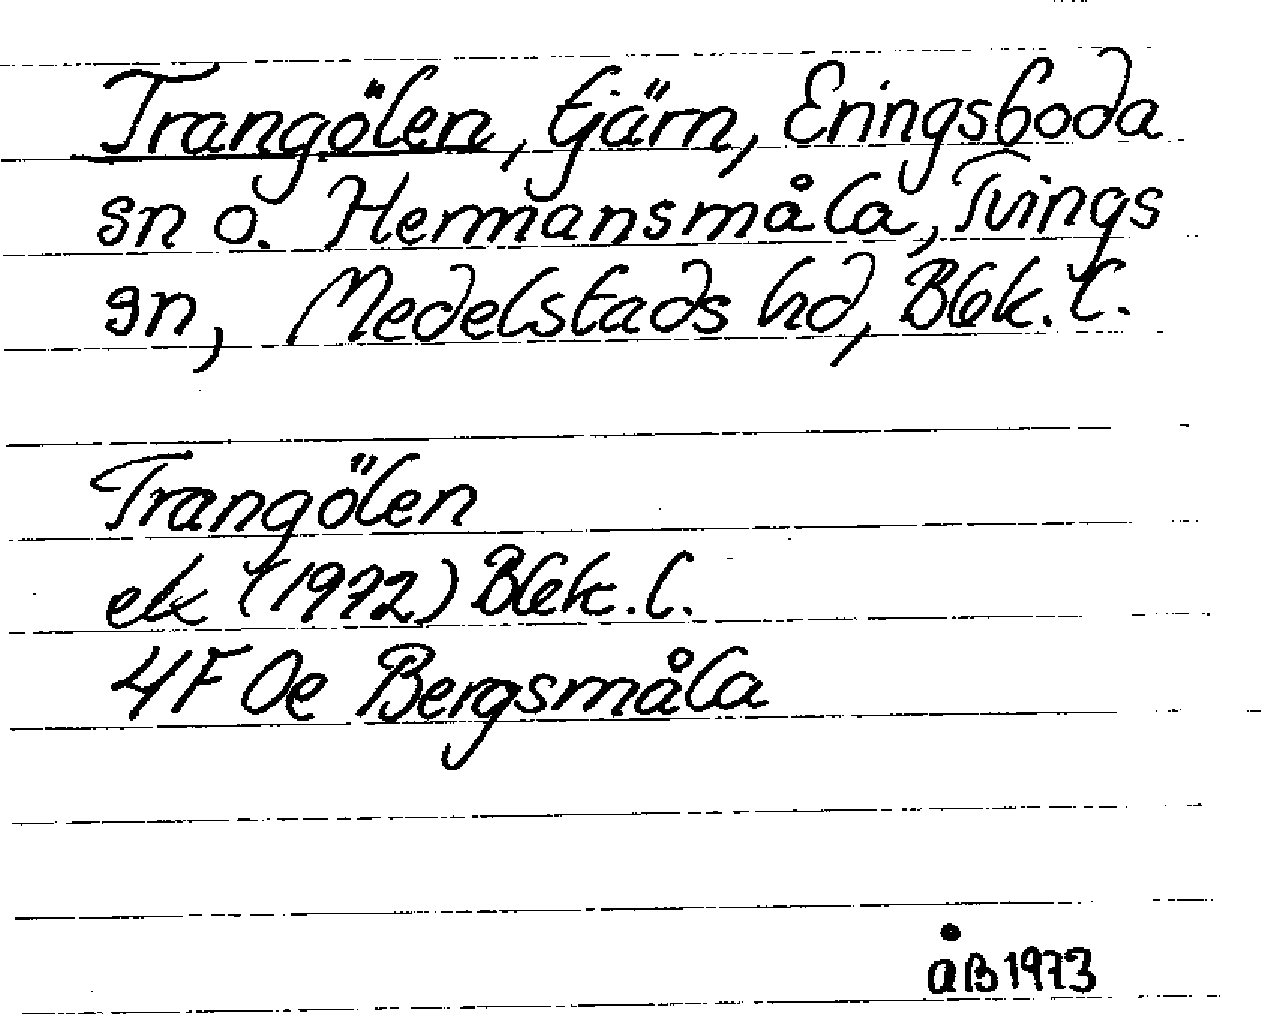 Trangölen, tjärn, Eringsboda
sn o. Hermansmåla, Tvings
sn, Medelstads hd, Blek. l.
Trangölen
ek (1972) Blek. l.
4F 0e Bergsmåla
åB 1973